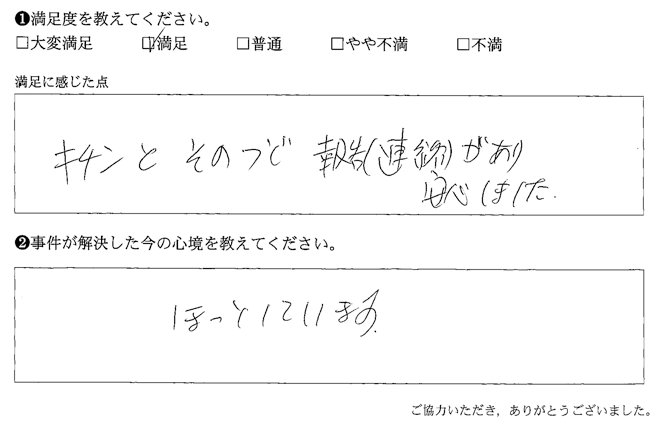 ❶満足度を教えてください。
□大変満足 □満足 □普通 □やや不満 □不満
満足に感じた点
キチンと そのつど 報告(連絡)があり
安心しました.
❷事件が解決した今の心境を教えてください。
ほっとしています.
ご協力いただき，ありがとうございました。